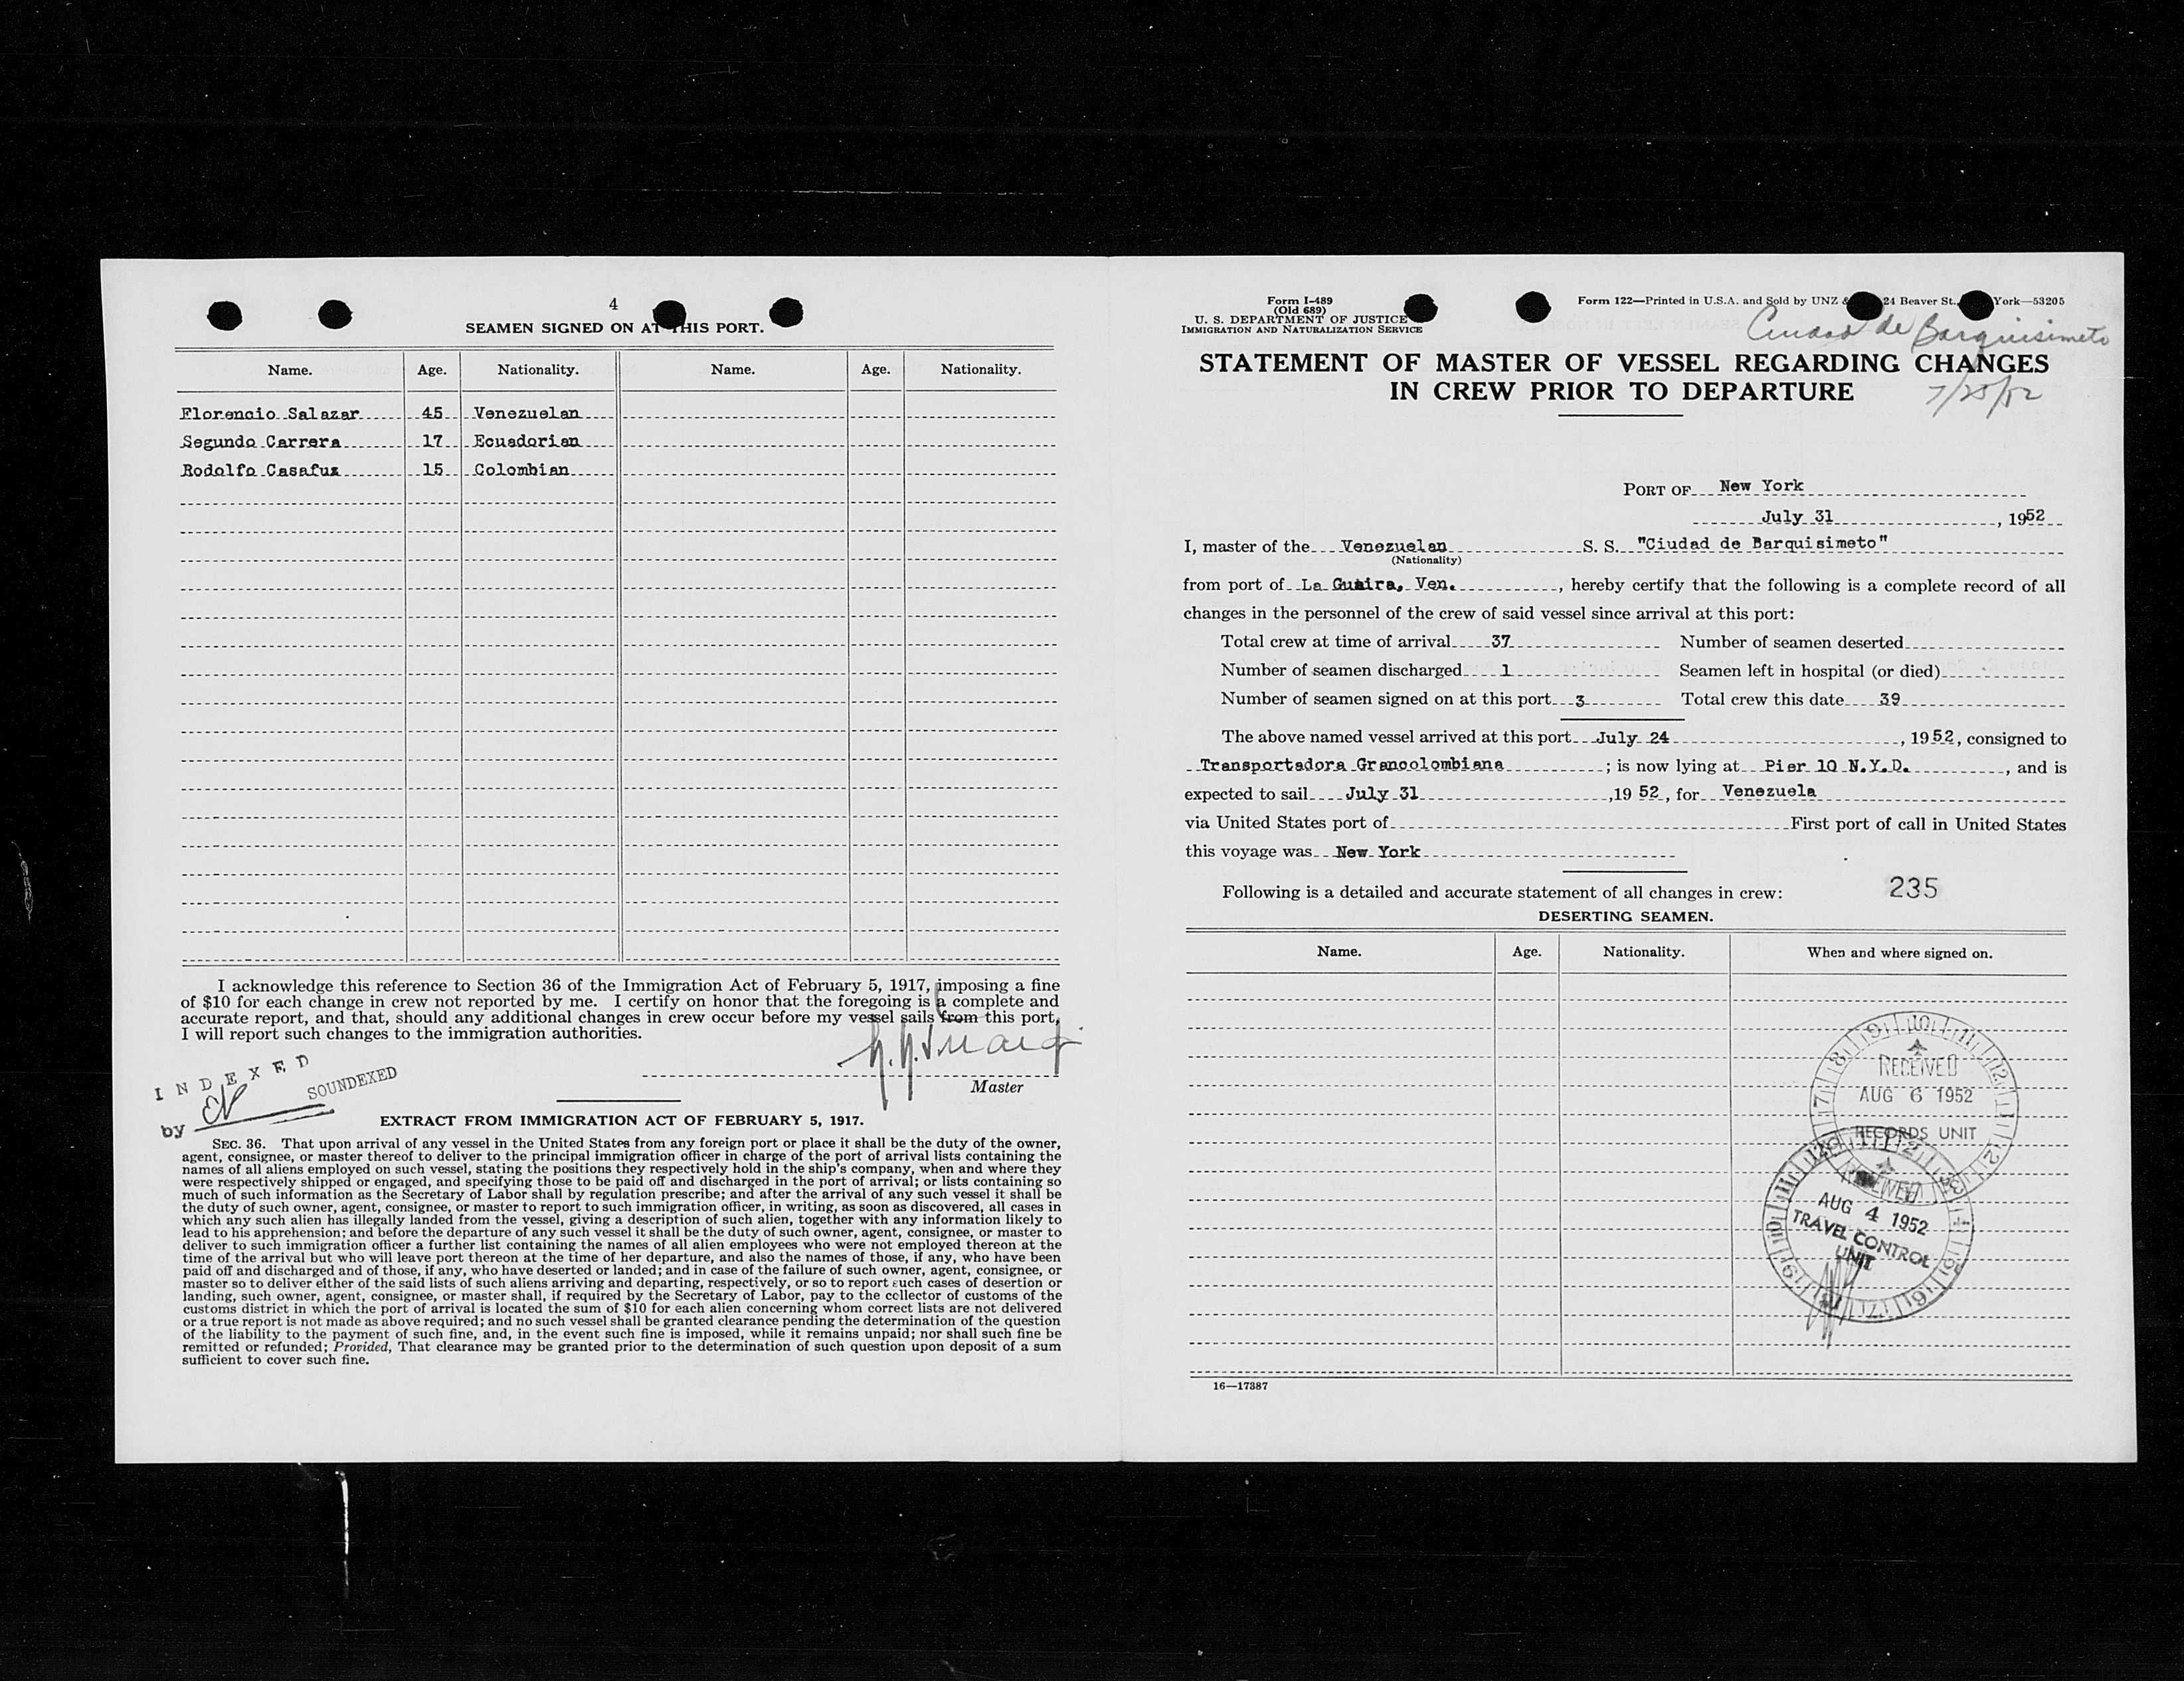 4
SEAMEN SIGNED ON AT THIS PORT.
Name. Age. Nationality. Name. Age. Nationality.
Florencio Salazar 45 Venezuelan
Segundo Carrera 17 Ecuadorian
Rodolfo Casafus 15 Colombian
I acknowledge this reference to Section 36 of the Immigration Act of February 5, 1917, imposing a fine
of $10 for each change in crew not reported by me. I certify on honor that the foregoing is a complete and
accurate report, and that, should any additional changes in crew occur before my vessel sails from this port,
I will report such changes to the immigration authorities.
INDEXED
SOUNDEXED
by
Master
EXTRACT FROM IMMIGRATION ACT OF FEBRUARY 5, 1917.
SEC. 36. That upon arrival of any vessel in the United States from any foreign port or place it shall be the duty of the owner,
agent, consignee, or master thereof to deliver to the principal immigration officer in charge of the port of arrival lists containing the
names of all aliens employed on such vessel, stating the positions they respectively hold in the ship's company, when and where they
were respectively shipped or engaged, and specifying those to be paid off and discharged in the port of arrival; or lists containing so
much of such information as the Secretary of Labor shall by regulation prescribe; and after the arrival of any such vessel it shall be
the duty of such owner, agent, consignee, or master to report to such immigration officer, in writing, as soon as discovered, all cases in
which any such alien has illegally landed from the vessel, giving a description of such alien, together with any information likely to
lead to his apprehension; and before the departure of any such vessel it shall be the duty of such owner, agent, consignee, or master to
deliver to such immigration officer a further list containing the names of all alien employees who were not employed thereon at the
time of the arrival but who will leave port thereon at the time of her departure, and also the names of those, if any, who have been
paid off and discharged and of those, if any, who have deserted or landed; and in case of the failure of such owner, agent, consignee, or
master so to deliver either of the said lists of such aliens arriving and departing, respectively, or so to report such cases of desertion or
landing, such owner, agent, consignee, or master shall, if required by the Secretary of Labor, pay to the collector of customs of the
customs district in which the port of arrival is located the sum of $10 for each alien concerning whom correct lists are not delivered
or a true report is not made as above required; and no such vessel shall be granted clearance pending the determination of the question
of the liability to the payment of such fine, and, in the event such fine is imposed, while it remains unpaid; nor shall such fine be
remitted or refunded; Provided, That clearance may be granted prior to the determination of such question upon deposit of a sum
sufficient to cover such fine.
Form I-489
(Old 689)
U. S. DEPARTMENT OF JUSTICE
IMMIGRATION AND NATURALIZATION SERVICE
Form 122—Printed in U.S.A. and Sold by UNZ & 24 Beaver St., York—53205
Ciudad de Barquisimeto
STATEMENT OF MASTER OF VESSEL REGARDING CHANGES
IN CREW PRIOR TO DEPARTURE
7/25/52
PORT OF New York
July 31, 1952
I, master of the Venezuelan S. S. "Ciudad de Barquisimeto"
(Nationality)
from port of La Guaira, Ven., hereby certify that the following is a complete record of all
changes in the personnel of the crew of said vessel since arrival at this port:
Total crew at time of arrival 37 Number of seamen deserted
Number of seamen discharged 1 Seamen left in hospital (or died)
Number of seamen signed on at this port 3 Total crew this date 39
The above named vessel arrived at this port July 24, 1952, consigned to
Transportadora Grancolombiana; is now lying at Pier 10 N.Y.D., and is
expected to sail July 31, 1952, for Venezuela
via United States port of First port of call in United States
this voyage was New York
Following is a detailed and accurate statement of all changes in crew: 235
DESERTING SEAMEN.
Name. Age. Nationality. When and where signed on.
RECEIVED
AUG 6 1952
RECORDS UNIT
RECEIVED
AUG 4 1952
TRAVEL CONTROL
UNIT
16—17387